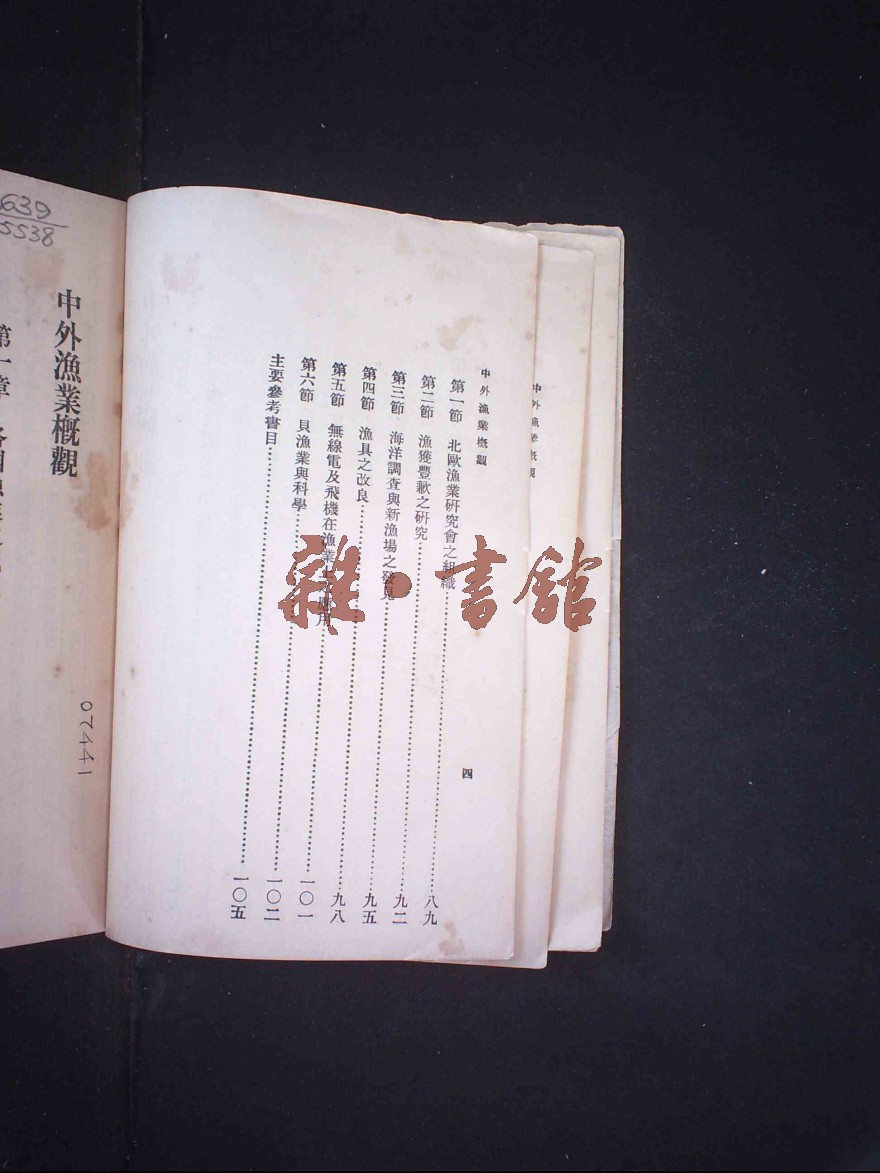 中外漁業概觀
中外漁業概觀 四
第一節 北歐漁業研究會之組織……八九
第二節 漁獲豐歉之研究……九二
第三節 海洋調查與新漁場之發見……九五
第四節 漁具之改良……九八
第五節 無線電及飛機在漁業上之應用……一〇一
第六節 貝漁業與科學……一〇二
主要參考書目……一〇五
雜·書館
639
5538
中外漁業概觀
07441
第一章